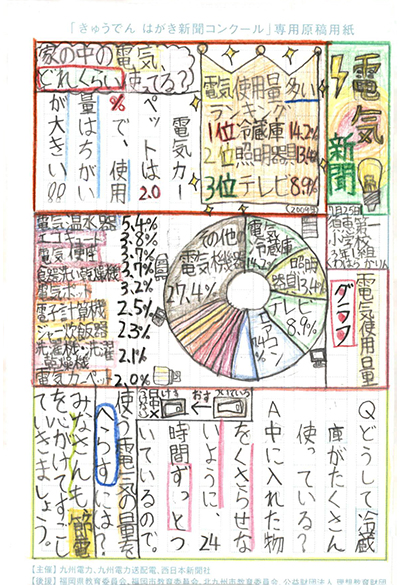 「きゅうでん はがき新聞コンクール」専用原稿用紙
電気
新聞
7月25日
電気使用量多い
ランキング
1位冷蔵庫14.2%
2位照明器具13.4%
3位テレビ8.9%
(2009年)
家の中の電気、
どれくらい使てる？
電気カー
ペットは2.0
%で、使用
量はちがい
が大きい!!
電気使用量
グラフ
電気冷蔵庫14.2%
照明器具13.4%
テレビ8.9%
エアコン
その他
電気機器
27.4%
電気温水器 5.4%
エコキュート 3.8%
電気便座 3.7%
食器洗い乾燥機 3.7%
電気ポット 3.2%
電子計算機 2.5%
ジャー炊飯器 2.3%
洗濯機・洗濯乾燥機 2.1%
電気カーペット 2.0%
Qどうして冷蔵
庫がたくさん
使っている？
A中に入れた物
をくさらせな
いように24
時間ずっとつ
いているので
おす
使う電気の量を
へらすには？
みなさんも節電
を心がけてすごし
ていきましょう。
【主催】九州電力、九州電力送配電、西日本新聞社